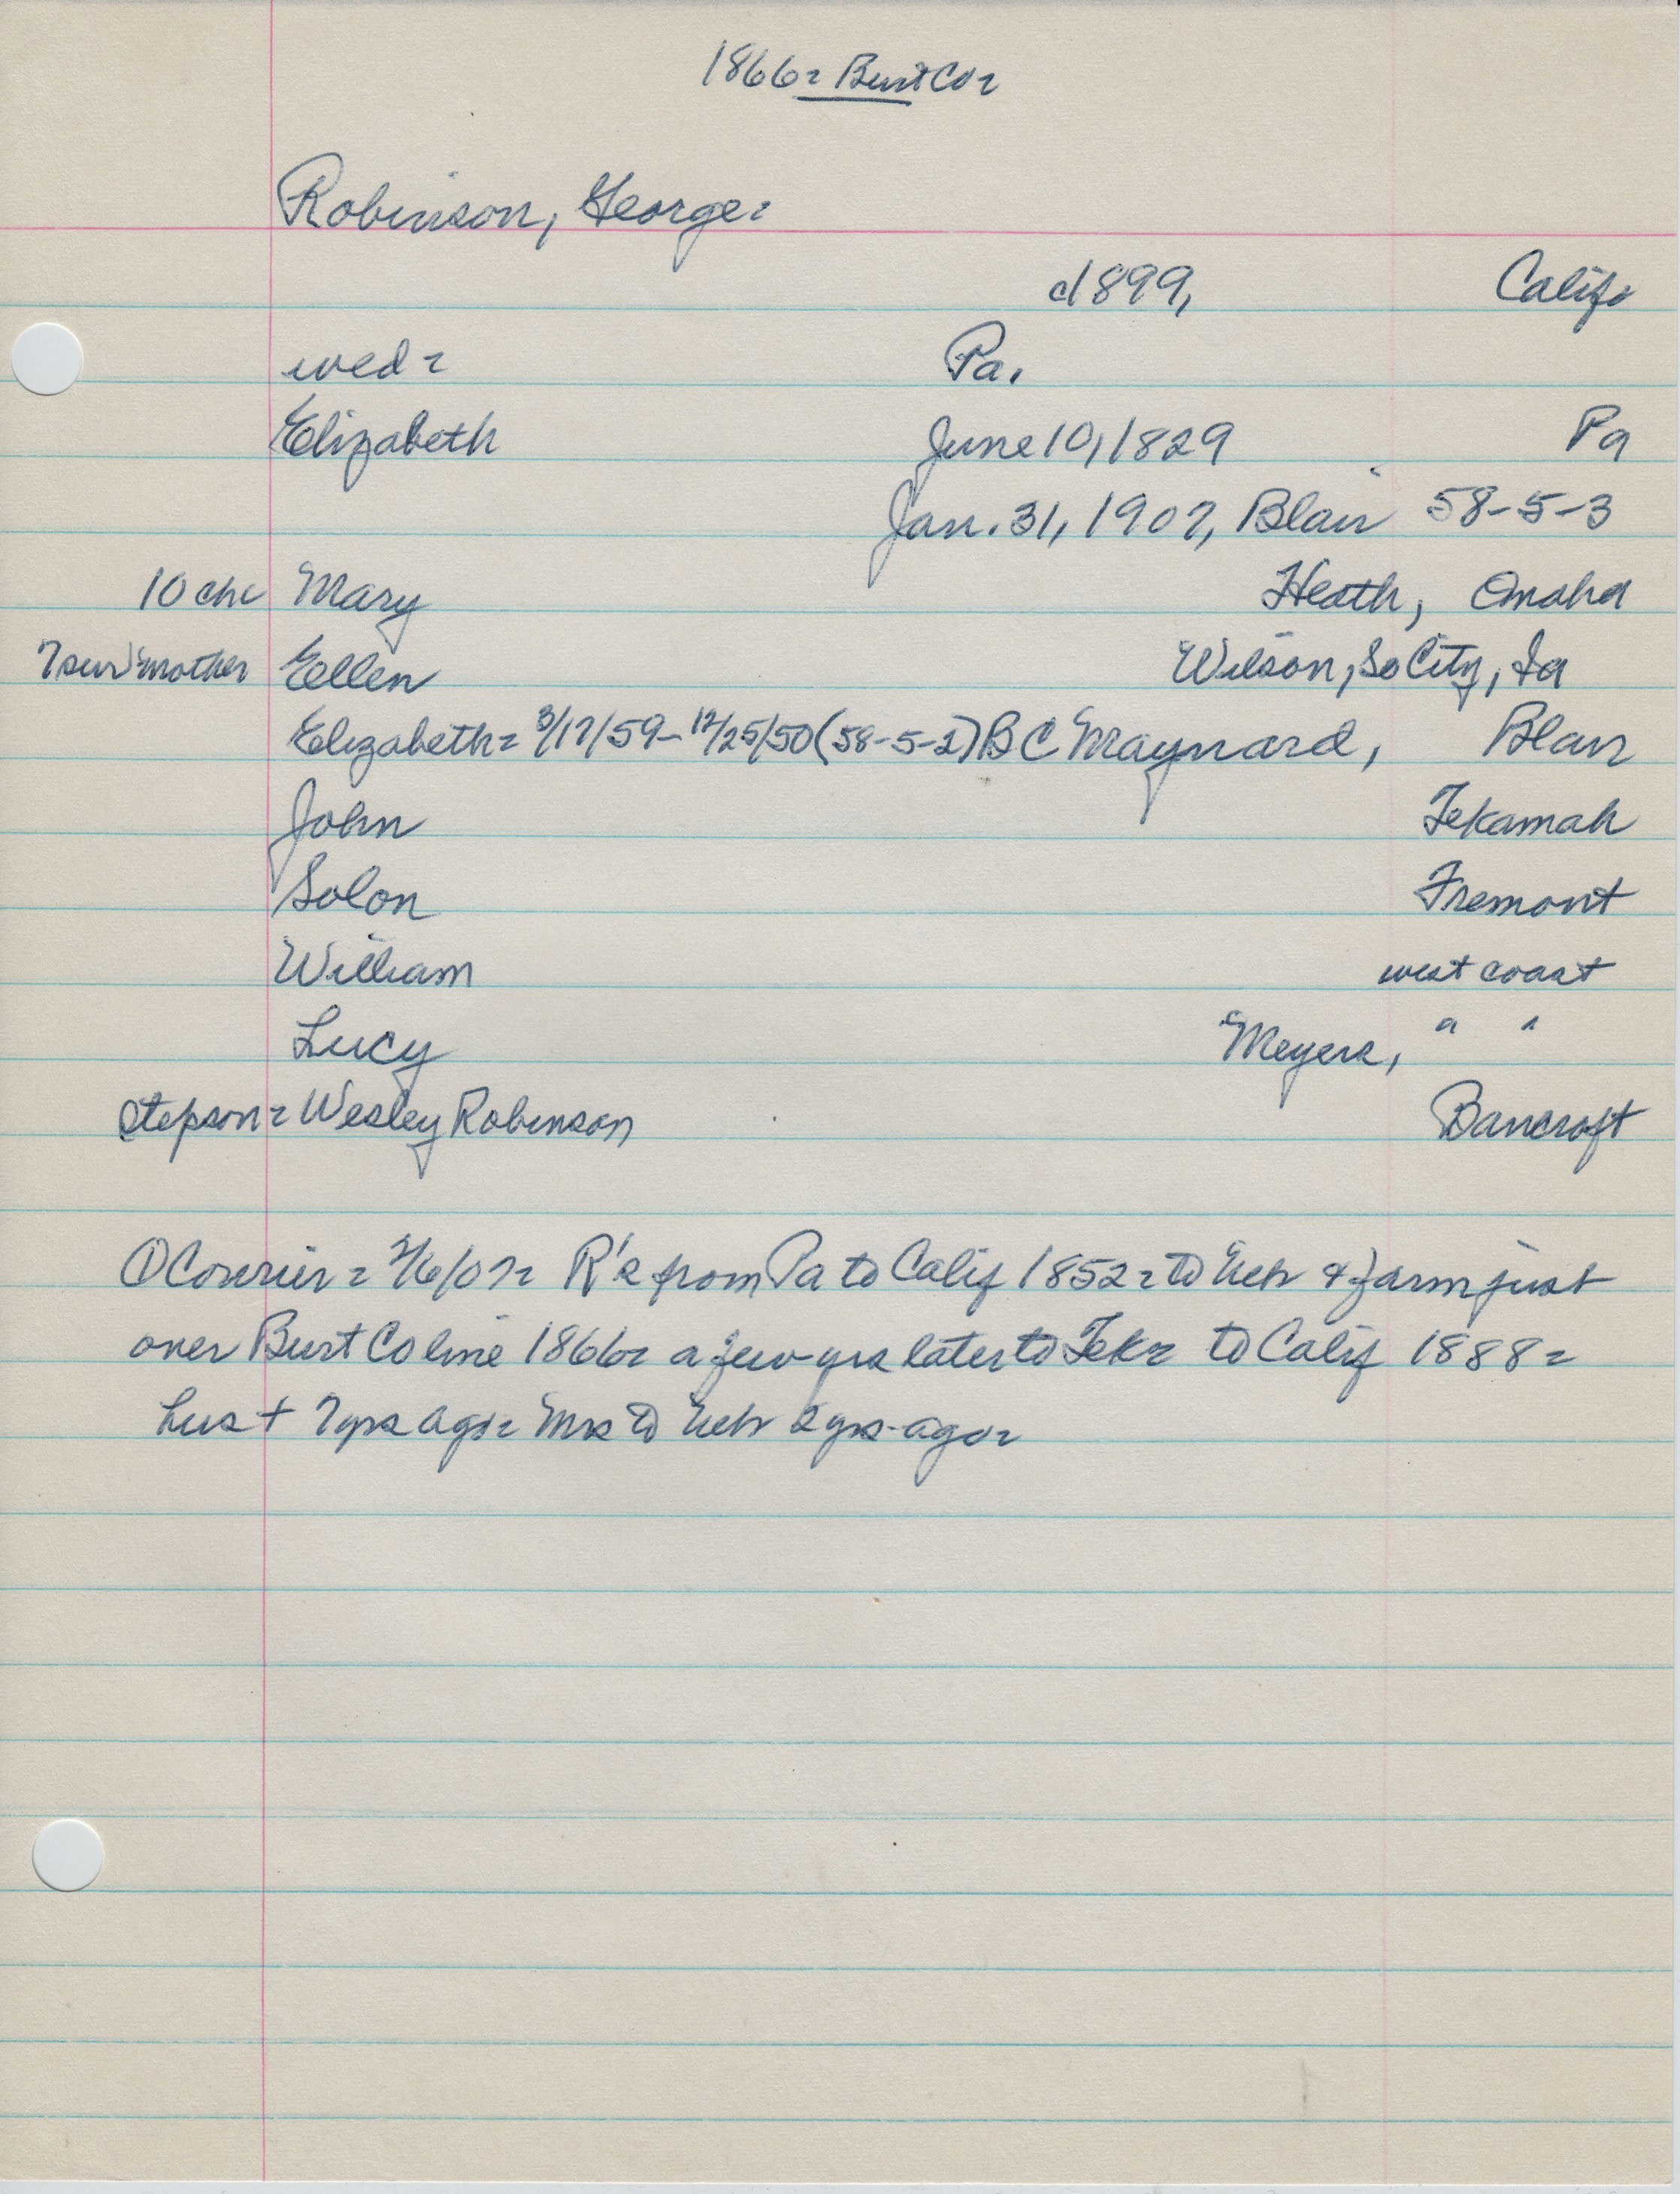 1866= Burt Co=
Robinson, George=
d 1899, Calif
wed= Pa.
Elizabeth June 10, 1829 Pa
Jan. 31, 1907, Blair 58-5-3
10 chc Mary Heath, Omaha
7 surv mother Ellen Wilson, So City, Ia
Elizabeth= 3/17/59- 12/25/50 (58-5-2) B C Maynard, Blair
John Tekamah
Solon Fremont
William west coast
Lucy Meyers, " "
stepson= Wesley Robinson Bancroft
Courier= 2/6/07= R's from Pa to Calif 1852= to Neb & farm just
over Burt Co line 1866= a few yrs later to Tek= to Calif 1888=
hus + 7 yrs ago= Mrs to Neb 2 yrs ago=